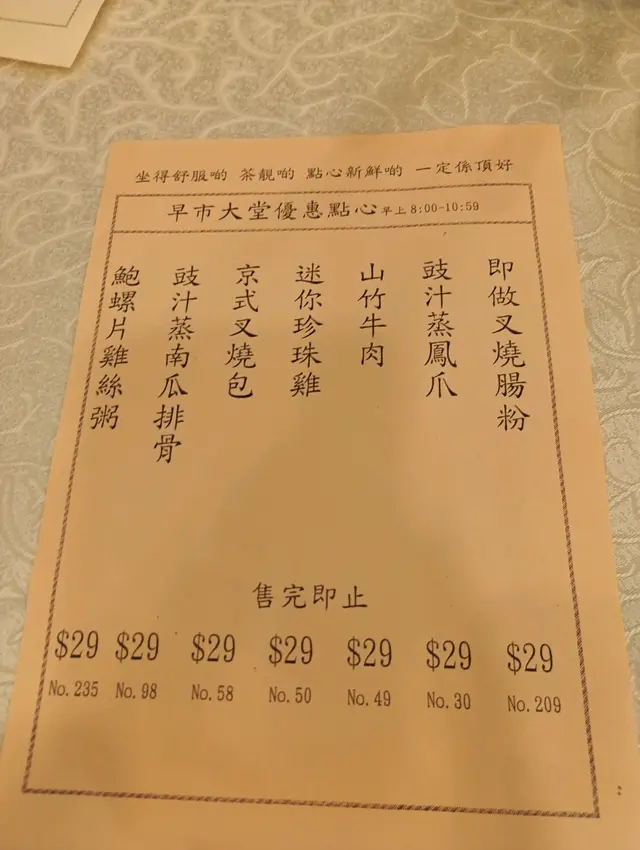 坐得舒服啲 茶靚啲 點心新鮮啲 一定係頂好
早市大堂優惠點心 早上 8:00-10:59
即做叉燒腸粉
豉汁蒸鳳爪
山竹牛肉
迷你珍珠雞
京式叉燒包
豉汁蒸南瓜排骨
鮑螺片雞絲粥
售完即止
$29 $29 $29 $29 $29 $29 $29
No.235 No.98 No.58 No.50 No.49 No.30 No.209